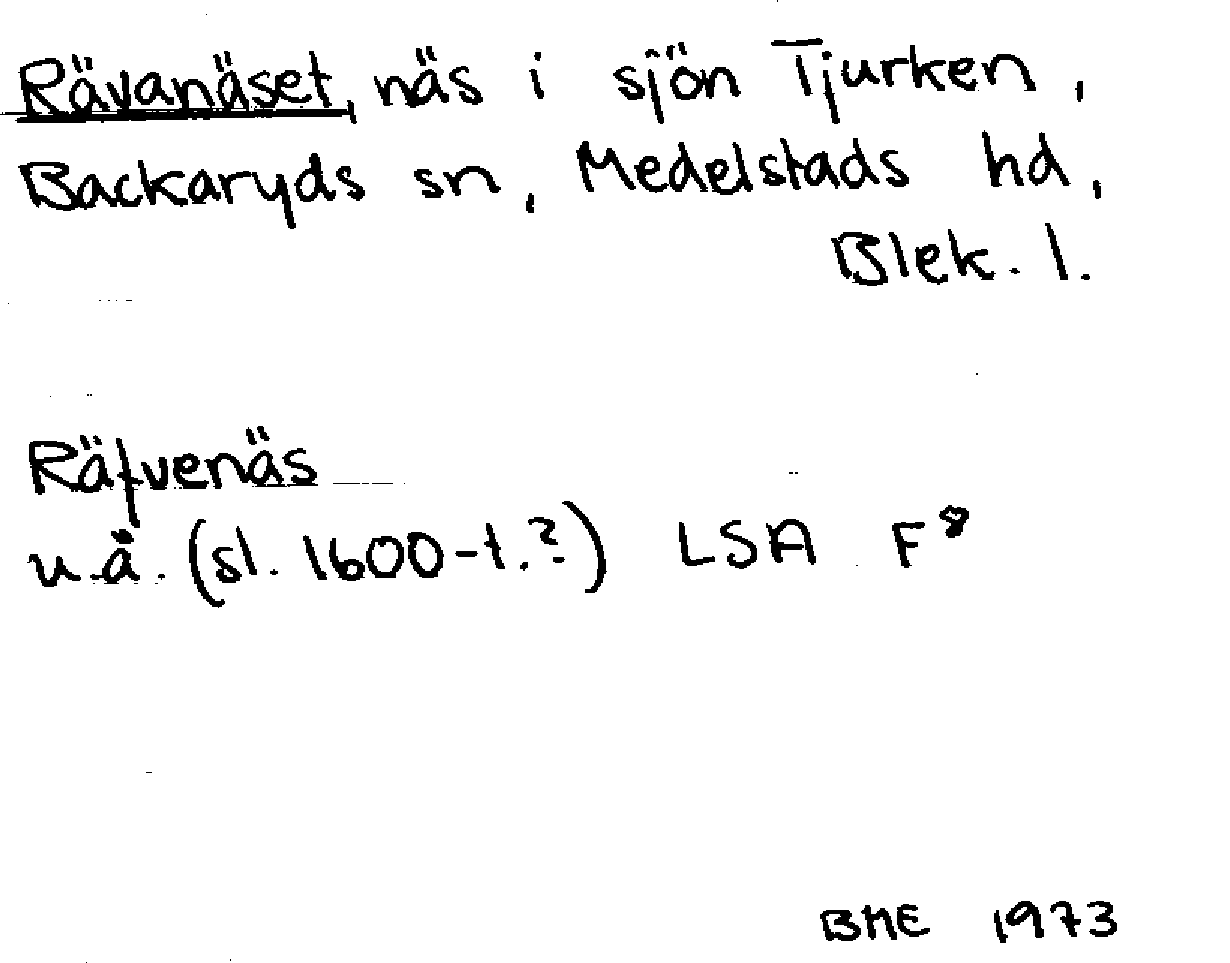 Rävanäset, näs i sjön Tjurken,
Backaryds sn, Medelstads hd,
Blek. l.
Räfvenäs
u.å. (sl. 1600-t.?) LSA F⁸
BME 1973